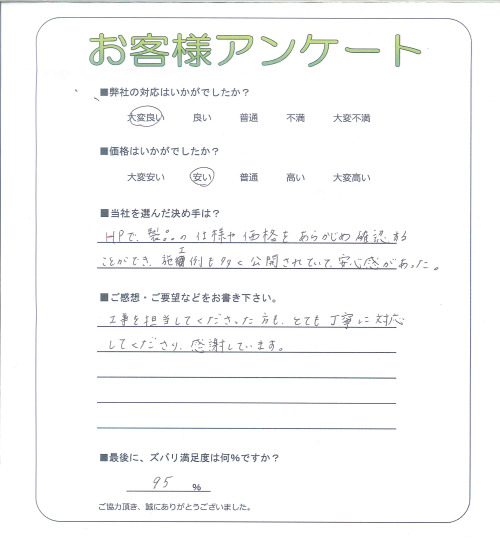 お客様アンケート
■弊社の対応はいかがでしたか？
大変良い 良い 普通 不満 大変不満
■価格はいかがでしたか？
大変安い 安い 普通 高い 大変高い
■当社を選んだ決め手は？
HPで、製品の仕様や価格をあらかじめ確認する
ことができ、施工例も多く公開されていて、安心感があった。
■ご感想・ご要望などをお書き下さい。
工事を担当してくださった方も、とても丁寧に対応
してくださり、感謝しています。
■最後に、ズバリ満足度は何％ですか？
95 ％
ご協力頂き、誠にありがとうございました。